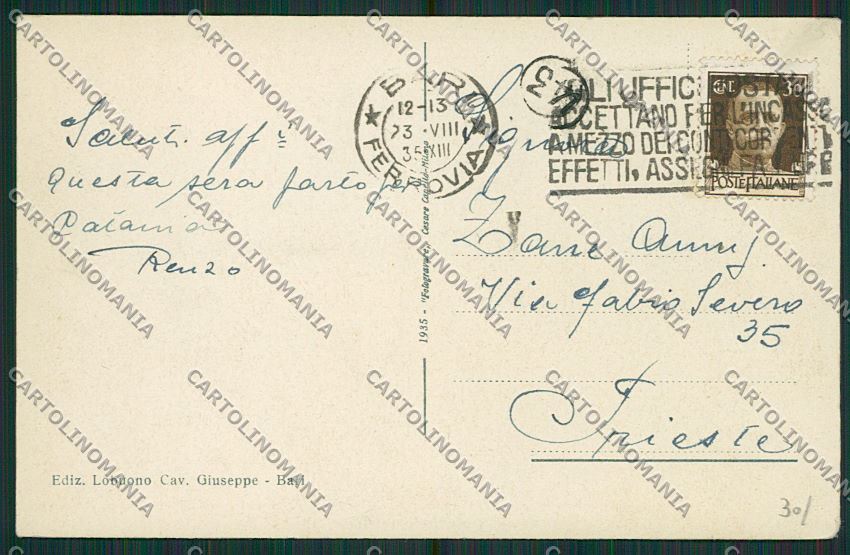 Saluti aff.i
Questa sera parto per
Catania
Renzo
Ediz. Lobuono Cav. Giuseppe - Bari
1935 - "Fotogravure" Cesare Capello - Milano
BARI
12-13
23 VIII
35 XIII
FERROVIA
43
GLI UFFICI POSTALI
ACCETTANO PER L'INCASSO
A MEZZO DEI CONTI CORRENTI
EFFETTI, ASSEGNI
CENT 30
POSTE ITALIANE
Signorina
Via Fabio Severo
35
Trieste
30/
CARTOLINOMANIA